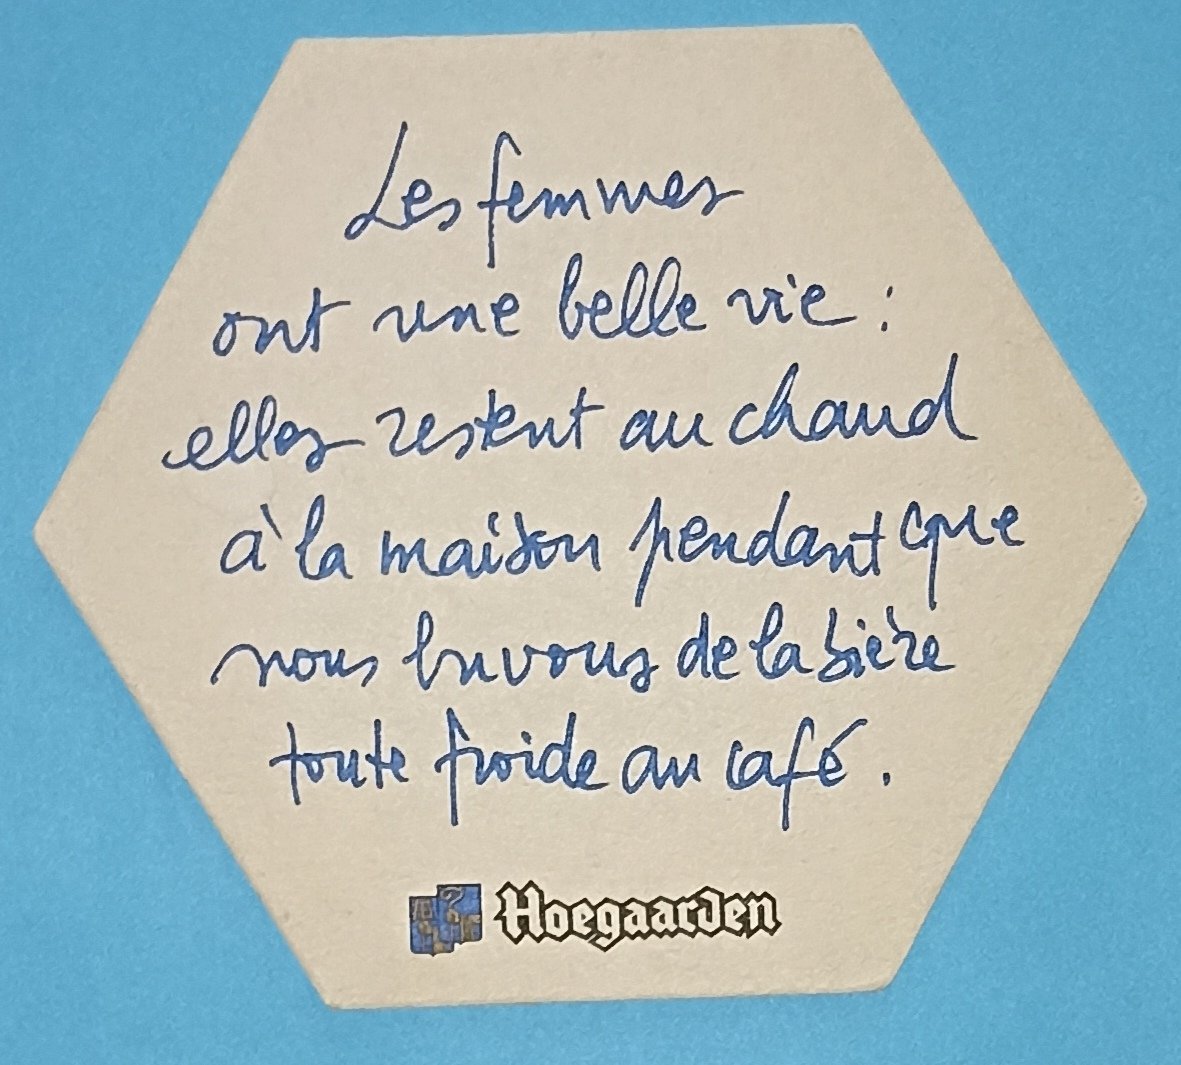 Les femmes
ont une belle vie :
elles restent au chaud
à la maison pendant que
nous buvons de la bière
toute froide au café.
Hoegaarden